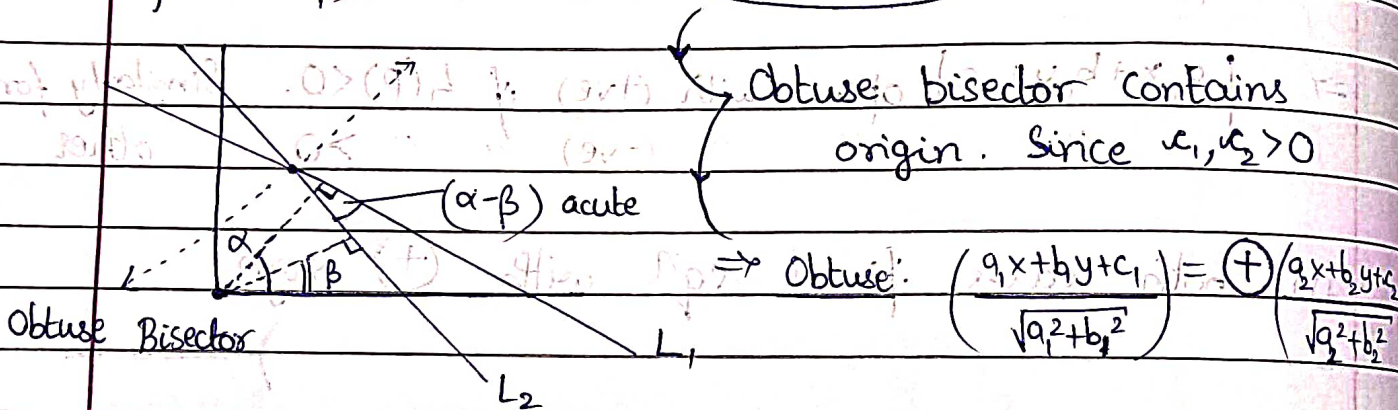 Obtuse bisector contains
origin. Since c₁, c₂ > 0
(α-β) acute
α
β
⇒ Obtuse: (a₁x+b₁y+c₁ / √a₁²+b₁²) = ⊕ (a₂x+b₂y+c₂ / √a₂²+b₂²)
Obtuse Bisector
L₁
L₂